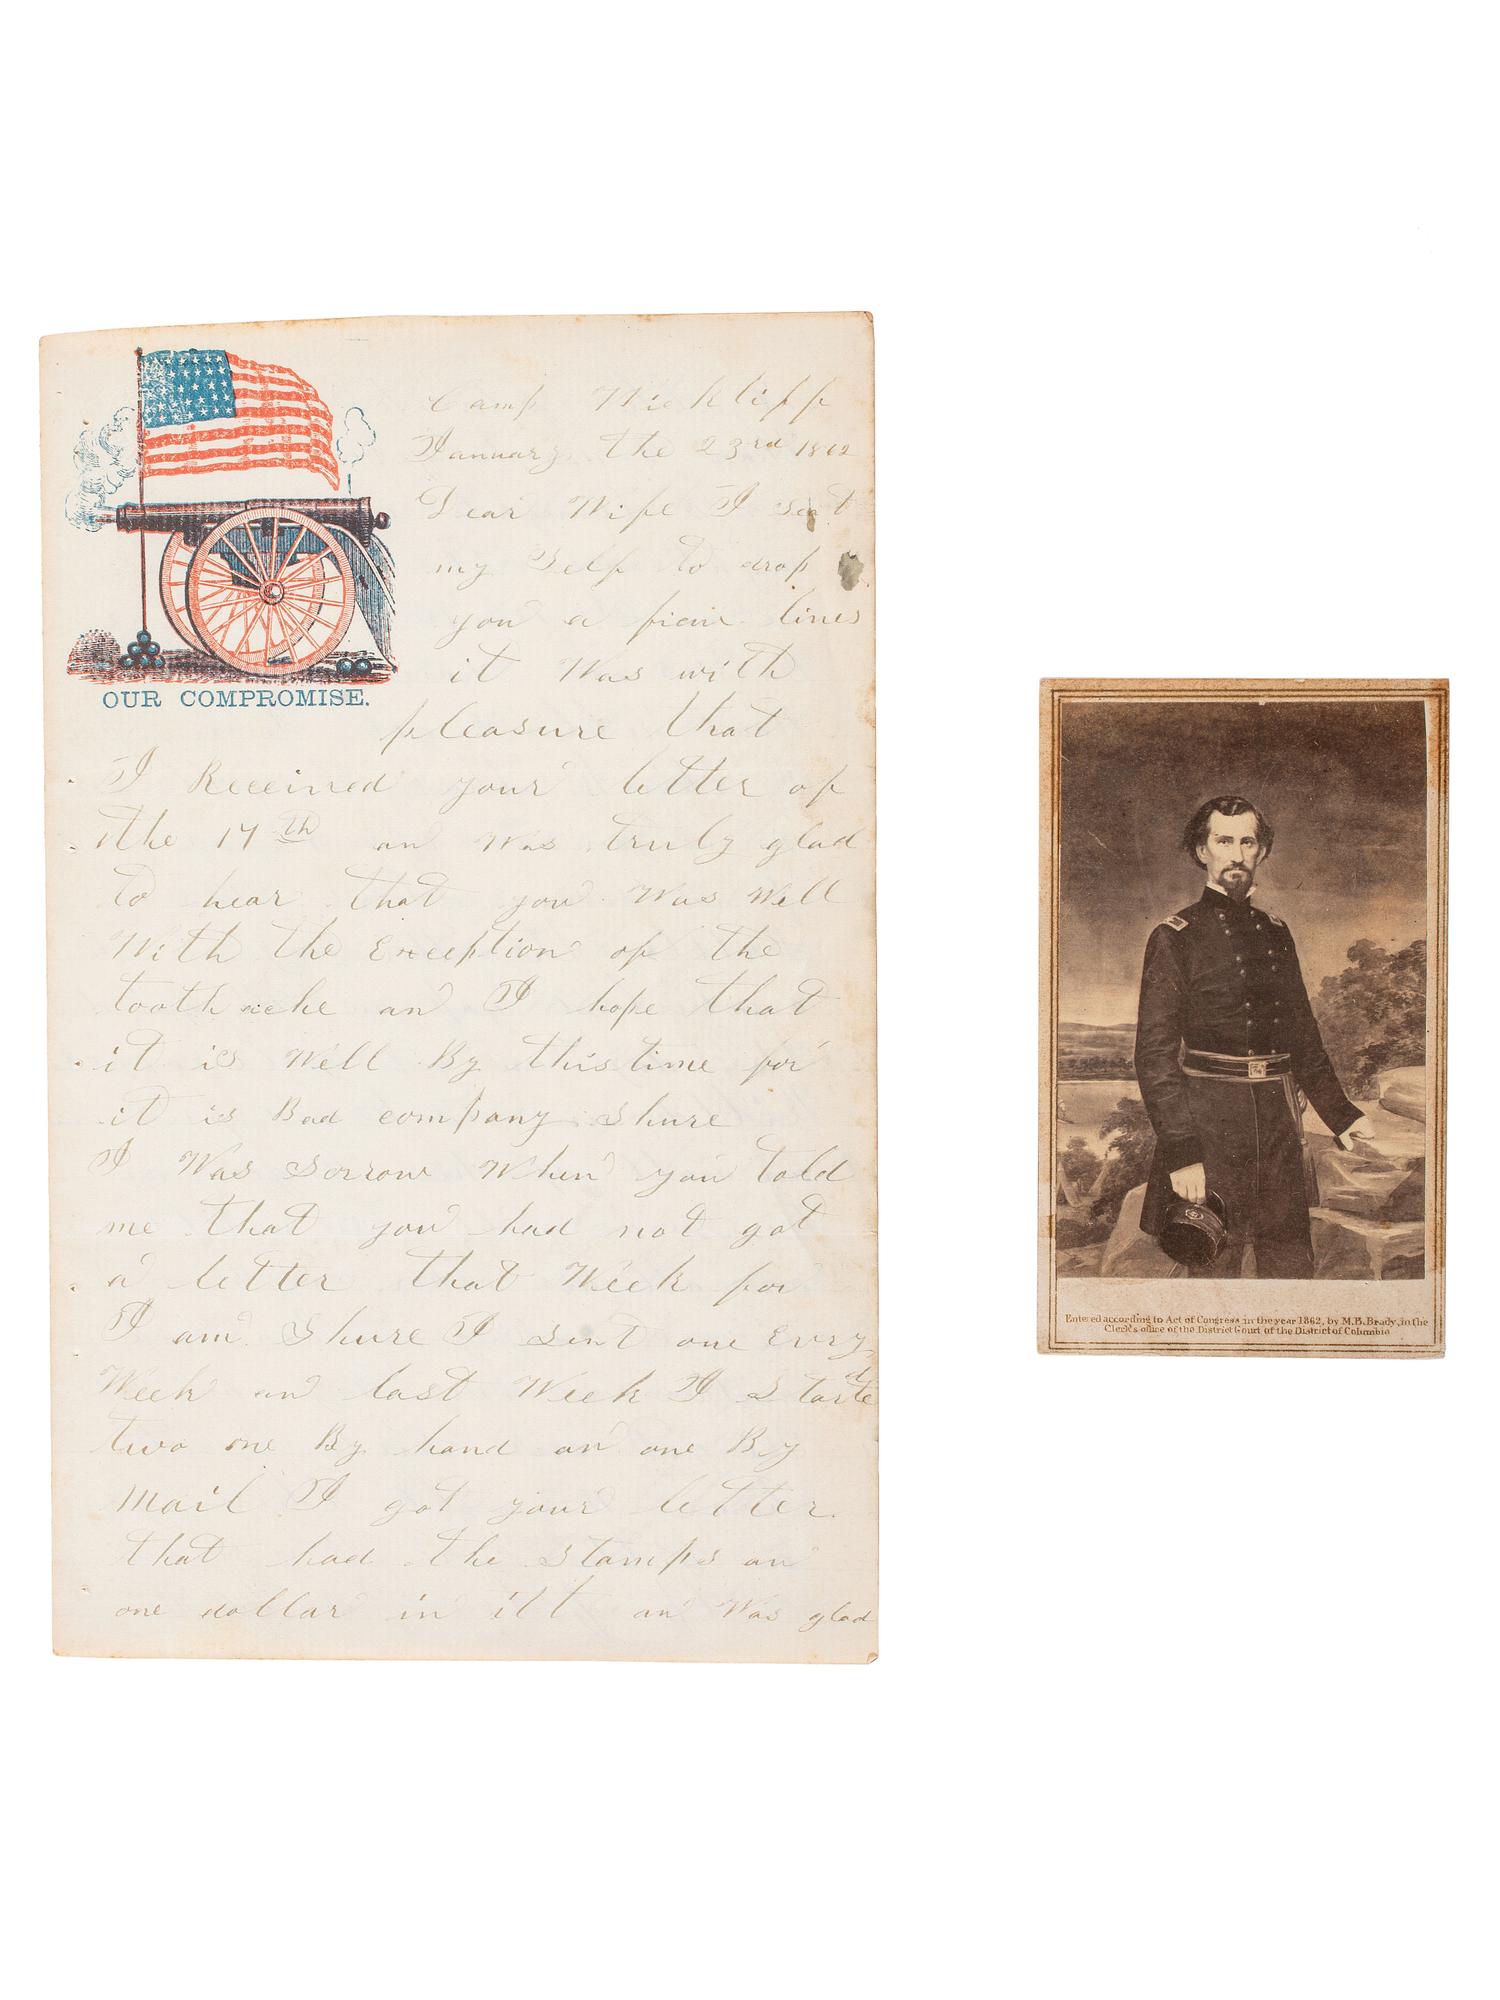 OUR COMPROMISE.
Camp Wickliff
January the 23rd 1862
Dear Wife I seat
my Self to drop
you a fiair lines
it Was with
pleasure that
I Received your letter of
the 17th an Was truly glad
to hear that you Was Well
With the Exception of the
tooth ache an I hope that
it is Well By this time for
it is Bad company Shure
I Was Sorrow When you told
me that you had not got
a letter that Week for
I am Shure I Sent one Evry
Week an last Week I Started
two one By hand an one By
Mail I got your letter
that had the Stamps an
one dollar in itt an Was glad
Entered according to Act of Congress in the year 1862, by M.B. Brady, in the
Clerk's office of the District Court of the District of Columbia